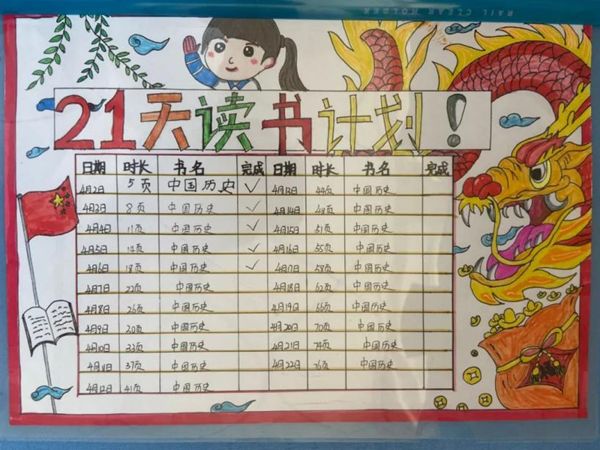 21天读书计划!
日期 时长 书名 完成 日期 时长 书名 完成
4月2日 5页 中国历史 ✓ 4月13日 44页 中国历史
4月3日 8页 中国历史 ✓ 4月14日 48页 中国历史
4月4日 11页 中国历史 ✓ 4月15日 51页 中国历史
4月5日 中国历史 ✓ 4月16日 55页 中国历史
4月6日 18页 中国历史 ✓ 4月17日 58页 中国历史
4月7日 22页 中国历史 4月18日 62页 中国历史
4月8日 26页 中国历史 4月19日 66页 中国历史
4月9日 中国历史 4月20日 70页 中国历史
4月10日 33页 中国历史 4月21日 74页 中国历史
4月11日 37页 中国历史 4月22日 76页 中国历史
4月12日 41页 中国历史